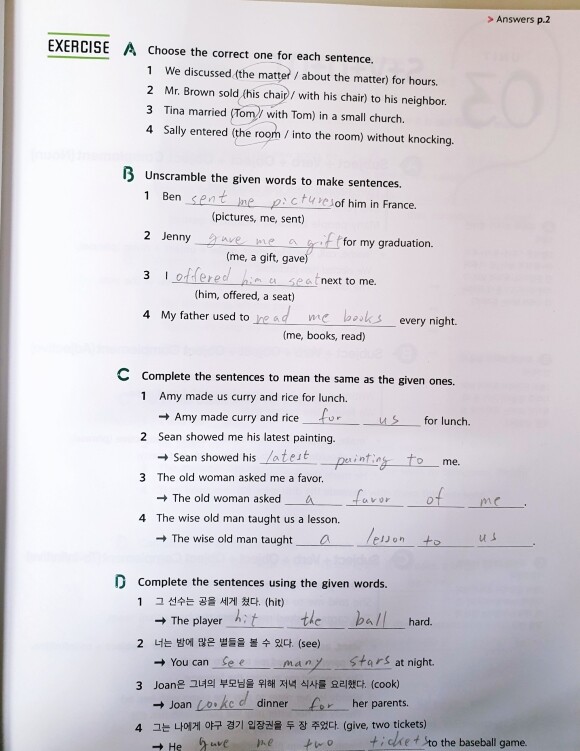 > Answers p.2
EXERCISE
A Choose the correct one for each sentence.
1 We discussed (the matter / about the matter) for hours.
2 Mr. Brown sold (his chair / with his chair) to his neighbor.
3 Tina married (Tom / with Tom) in a small church.
4 Sally entered (the room / into the room) without knocking.
B Unscramble the given words to make sentences.
1 Ben sent me pictures of him in France.
(pictures, me, sent)
2 Jenny gave me a gift for my graduation.
(me, a gift, gave)
3 I offered him a seat next to me.
(him, offered, a seat)
4 My father used to read me books every night.
(me, books, read)
C Complete the sentences to mean the same as the given ones.
1 Amy made us curry and rice for lunch.
→ Amy made curry and rice for us for lunch.
2 Sean showed me his latest painting.
→ Sean showed his latest painting to me.
3 The old woman asked me a favor.
→ The old woman asked a favor of me.
4 The wise old man taught us a lesson.
→ The wise old man taught a lesson to us.
D Complete the sentences using the given words.
1 그 선수는 공을 세게 쳤다. (hit)
→ The player hit the ball hard.
2 너는 밤에 많은 별들을 볼 수 있다. (see)
→ You can see many stars at night.
3 Joan은 그녀의 부모님을 위해 저녁 식사를 요리했다. (cook)
→ Joan cooked dinner for her parents.
4 그는 나에게 야구 경기 입장권을 두 장 주었다. (give, two tickets)
→ He gave me two tickets to the baseball game.